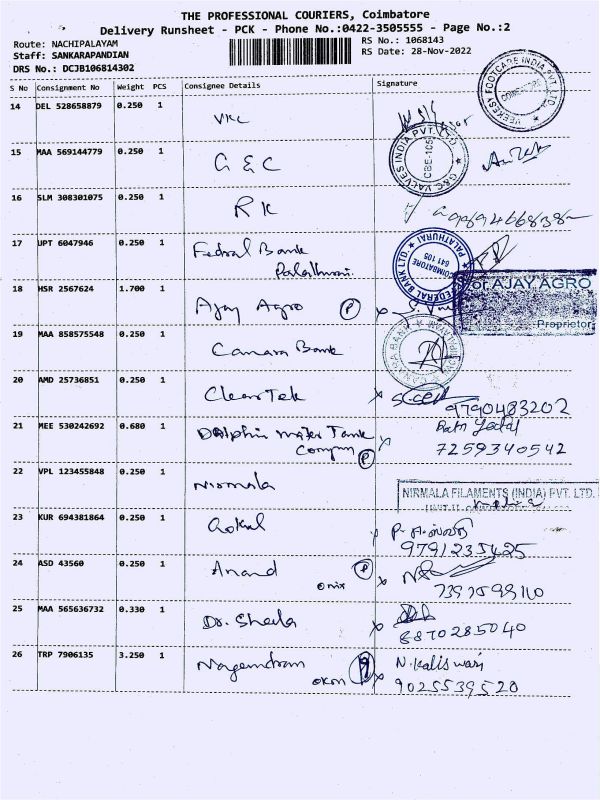 THE PROFESSIONAL COURIERS, Coimbatore
Delivery Runsheet - PCK - Phone No.:0422-3505555 - Page No.:2
Route: NACHIPALAYAM
RS No.: 1068143
Staff: SANKARAPANDIAN
RS Date: 28-Nov-2022
DRS No.: DCJB106814302
S No Consignment No Weight PCS Consignee Details Signature
14 DEL 528658879 0.250 1 VKC
VEEKESY FOOTCARE INDIA PVT. LTD. COIMBATORE
15 MAA 569144779 0.250 1 G & C
G&C VALVES INDIA PVT. LTD. CBE-105
16 SLM 308301075 0.250 1 RK
17 UPT 6047946 0.250 1 Fedral Bank
Palathurai
FEDERAL BANK LTD. PALATHURAI COIMBATORE 641 105
18 HSR 2567624 1.700 1 Ajay Agro P
For AJAY AGRO
Proprietor
19 MAA 858575548 0.250 1 Canara Bank
CANARA BANK
20 AMD 25736851 0.250 1 ClearTek
9790483202
21 MEE 530242692 0.680 1 Dolphin Water Tank
Company P
7259340542
22 VPL 123455848 0.250 1 Nirmala
NIRMALA FILAMENTS (INDIA) PVT. LTD.
23 KUR 694381864 0.250 1 Gokul
9791235425
24 ASD 43560 0.250 1 Anand P
onix
25 MAA 565636732 0.330 1 Dr. Sheela
8870285040
26 TRP 7906135 3.250 1 Nagendran
N. Kaliswari
9025539520